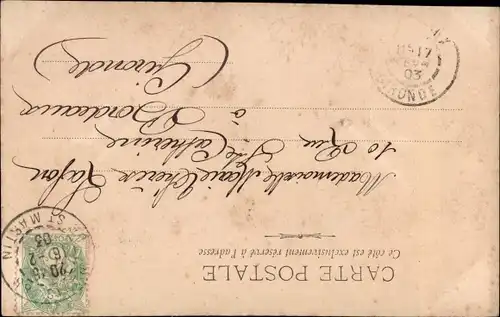 CARTE POSTALE
Ce côté est exclusivement réservé à l'adresse
Mademoiselle Marie Thérèse Lafon
10 Rue Ste Catherine
à Bordeaux
(Gironde)
ST MARTIN
03
GIRONDE
03